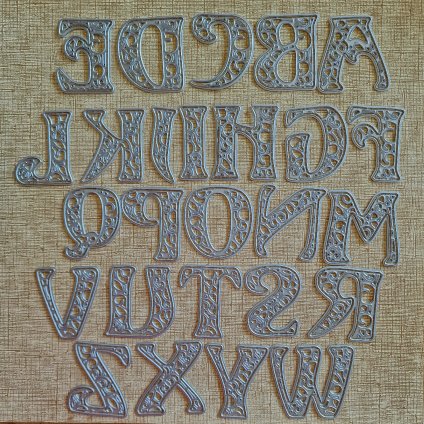 ABCDE
FGHIJKL
MNOPQ
RSTUV
WYXZ